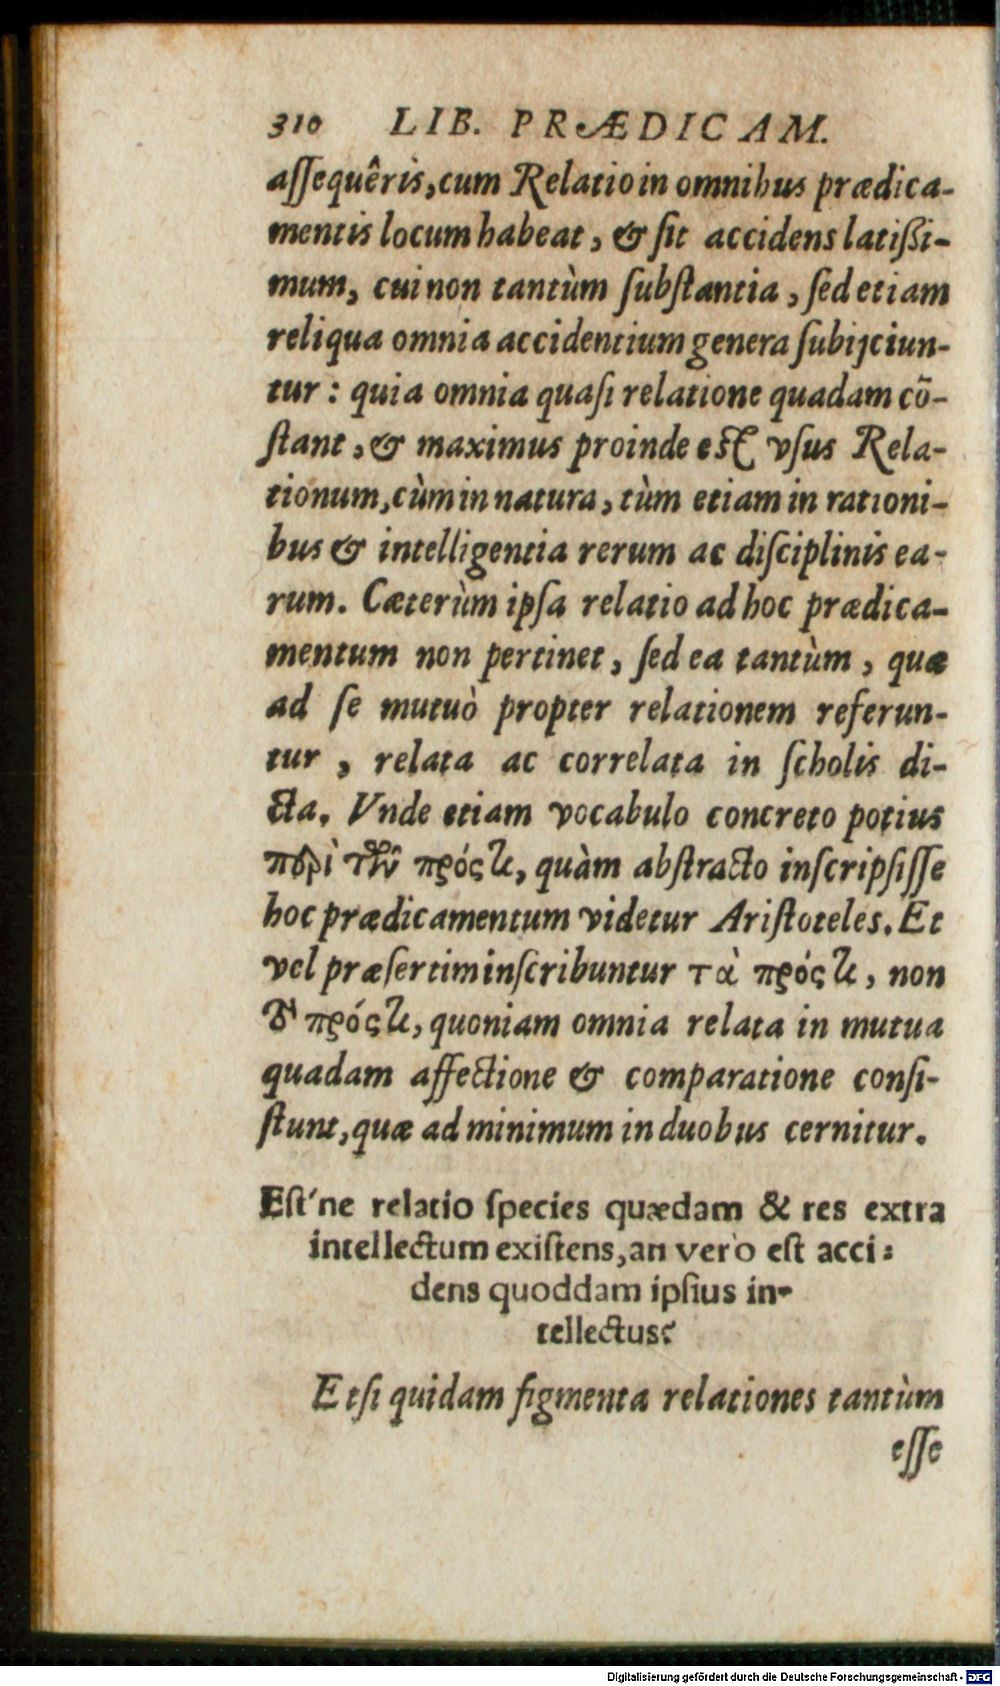 310 LIB. PRÆDICAM.
aſſequêris, cum Relatio in omnibus prædica-
mentis locum habeat, & ſit accidens latiſsi-
mum, cui non tantùm ſubſtantia, ſed etiam
reliqua omnia accidentium genera ſubijciun-
tur: quia omnia quaſi relatione quadam cō-
ſtant, & maximus proinde eſt vſus Rela-
tionum, cùm in natura, tùm etiam in rationi-
bus & intelligentia rerum ac diſciplinis ea-
rum. Cæterùm ipſa relatio ad hoc prædica-
mentum non pertinet, ſed ea tantùm, quæ
ad ſe mutuò propter relationem referun-
tur, relata ac correlata in ſcholis di-
cta. Vnde etiam vocabulo concreto potius
περὶ τῶν πρόςτι, quàm abſtracto inſcripſiſſe
hoc prædicamentum videtur Ariſtoteles. Et
vel præſertim inſcribuntur τὰ πρόςτι, non
τὸ πρόςτι, quoniam omnia relata in mutua
quadam affectione & comparatione conſi-
ſtunt, quæ ad minimum in duobus cernitur.
Eſt'ne relatio ſpecies quædam & res extra
intellectum exiſtens, an verò eſt acci-
dens quoddam ipſius in-
tellectus?
Etſi quidam figmenta relationes tantùm
eſſe
Digitalisierung gefördert durch die Deutsche Forschungsgemeinschaft - DFG